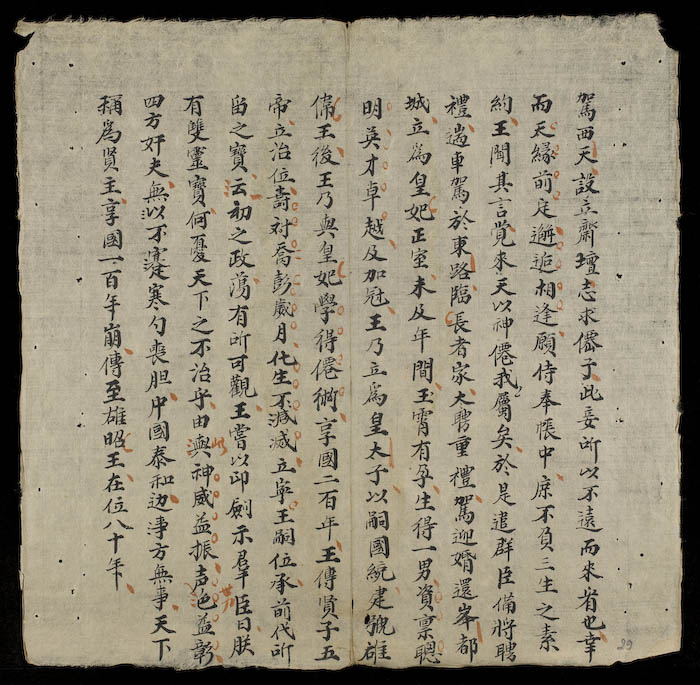 駕西天設立齋壇志求僊子此妾所以不遠而來省也幸
而天緣前定邂逅相逢願侍奉帳中庶不負三生之素
約王聞其言覺來天以神僊我屬矣於是遣群臣備將聘
禮遄車駕於東路臨長者家大聘重禮駕迎婚還峯都
城立為皇妃正室未及年間玉霄有孕生得一男資禀聰
明英才卓越及加冠王乃立為皇太子以嗣國統建號雄
偉王後王乃與皇妃學得僊術享國二百年王傳賢子五
帝立治位壽対喬彭歲月化生不滅滅立寧王嗣位承前代所
留之寶云初之政蕩有所可觀王嘗以印劍示羣臣曰朕
有雙靈寶何憂天下之不治乎由此與神威益振声色益彰
四方奸夫無以不寒勺喪胆中國泰和边事方無事天下
稱為賢主享國一百年崩傳至雄昭王在位八十年
29